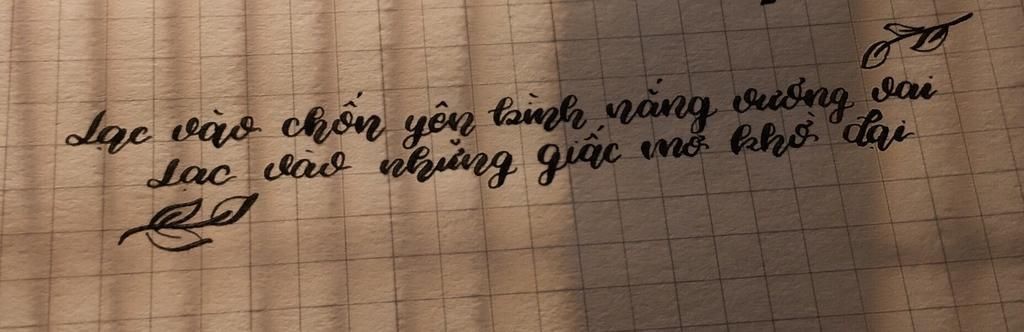 Lạc vào chốn yên bình nắng vướng vai
Lạc vào những giấc mơ khờ dại